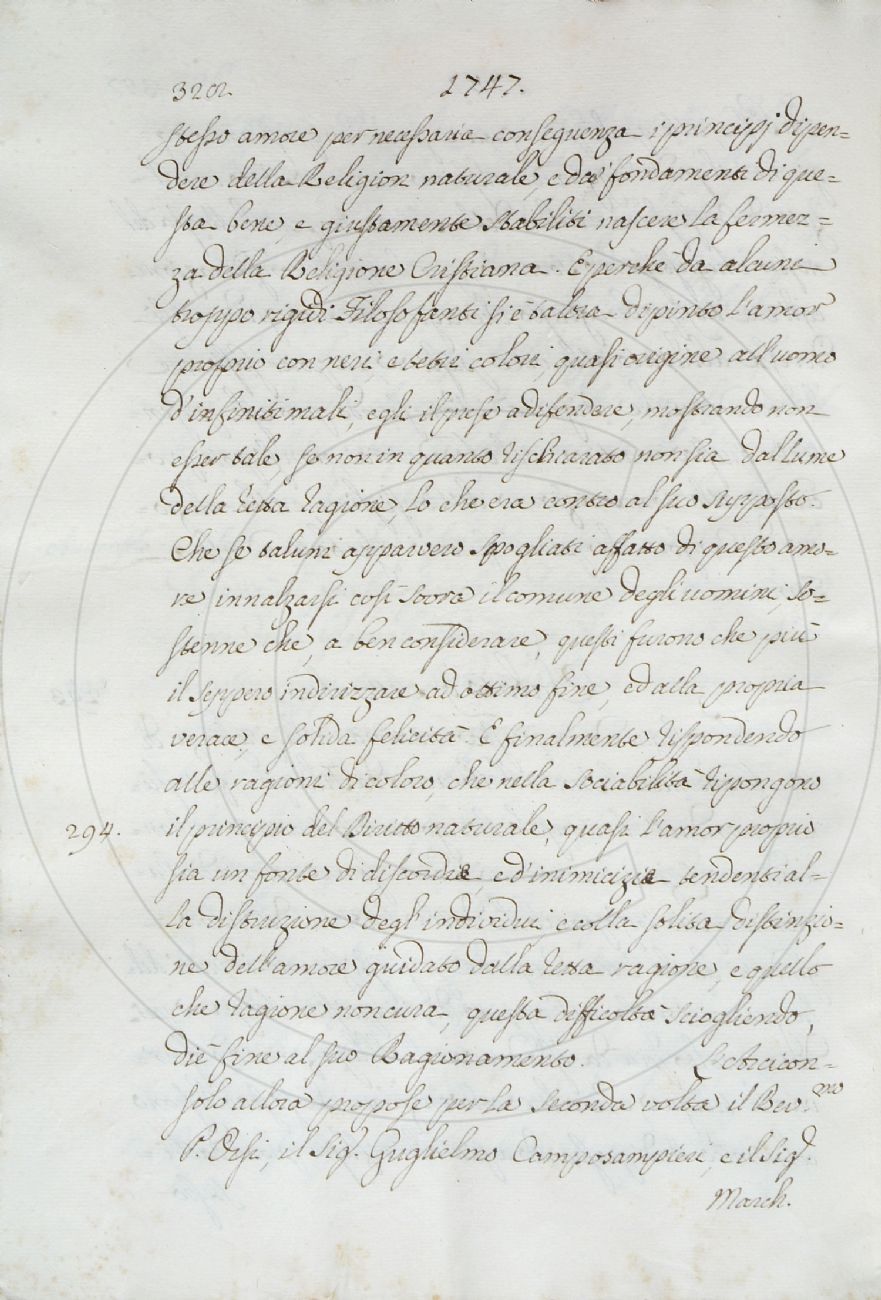 3202. 1747.
stesso amore per necessaria conseguenza i principj dipen=
dere della Religion naturale, e da' fondamenti di que=
sta bene, e giustamente stabiliti nascere la fermez=
za della Religione Cristiana. E perche da alcuni
troppo rigidi Filosofanti si è talora dipinto l'amor
proprio con neri, e tetri colori, quasi origine all'uomo
d'infiniti mali, egli il prese a difendere, mostrando non
esser tale, se non in quanto rischiarato non sia dal lume
della retta ragione, lo che era contro al suo supposto.
Che se taluni apparvero spogliati affatto di questo amo=
re innalzarsi così sovra il comune degli uomini, so=
stenne che, a ben considerare, questi furono che più
il seppero indirizzare ad ottimo fine, ed alla propria
verace, e solida felicità. E finalmente rispondendo
alle ragioni di coloro, che nella sociabilità ripongono
294. il principio del Diritto naturale, quasi l'amor proprio
sia un fonte di discordie, e d'inimicizie tendenti al=
la distruzione degl'individui, e colla solita distinzio=
ne dell'amore guidato dalla retta ragione, e quello
che ragione non cura, questa difficoltà sciogliendo,
diè fine al suo Ragionamento. L'Arcicon=
solo allora propose per la seconda volta il Rev.mo
P. Orsi, il Sig. Guglielmo Camposampieri, e il Sig.
March.